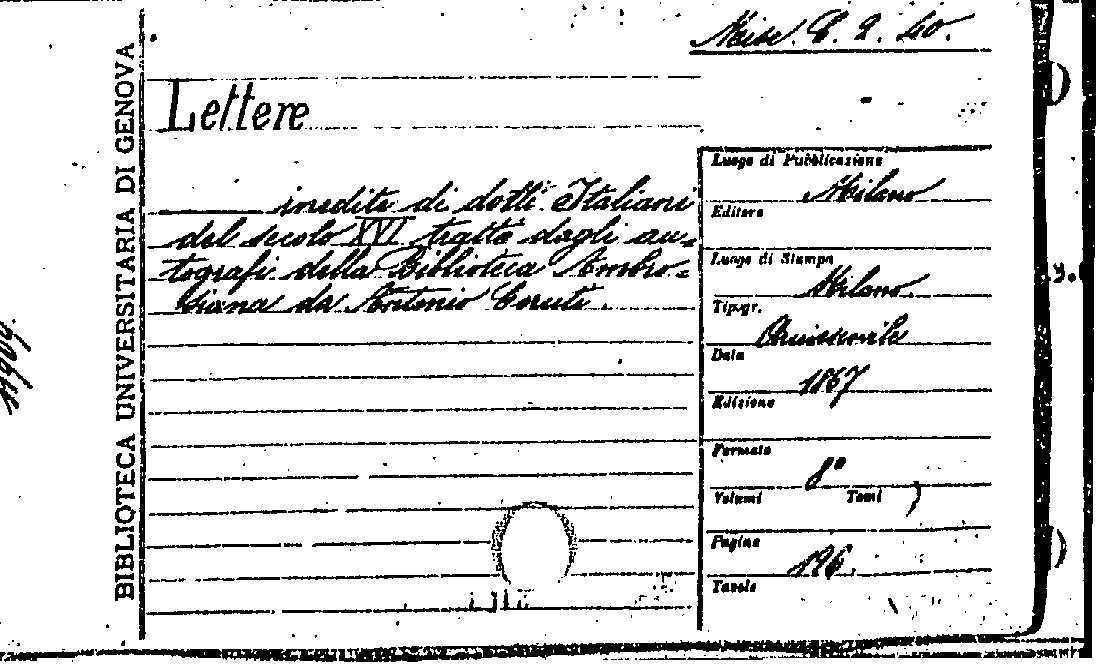 Misc. C. 2. 40.
Lettere
inedite di dotti Italiani
del secolo XVI tratte dagli au-
tografi della Biblioteca Ambro-
siana da Antonio Ceruti.
BIBLIOTECA UNIVERSITARIA DI GENOVA
Luogo di Pubblicazione
Milano
Editore
Luogo di Stampa
Milano.
Tipogr.
Data
1867
Edizione
Formato
8°
Volumi Tomi
Pagine
196.
Tavole